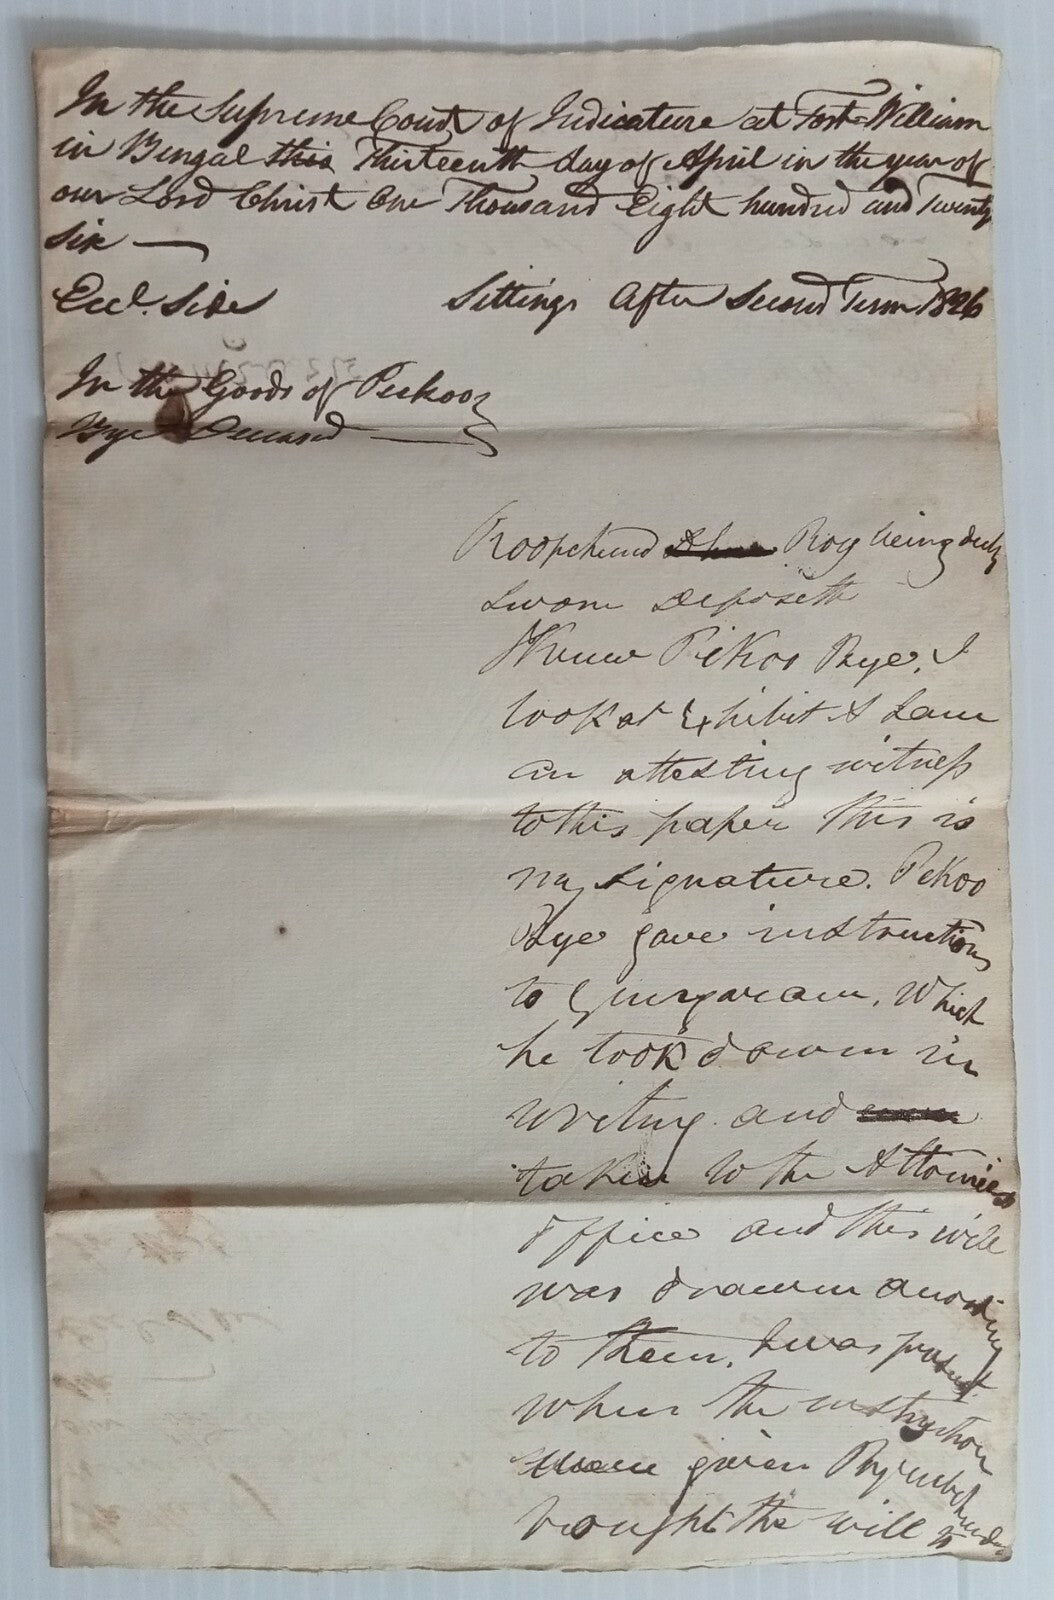 In the Supreme Court of Judicature at Fort William
in Bengal this Thirteenth day of April in the year of
our Lord Christ One Thousand Eight hundred and Twenty
Six —
Eccl. Side Sittings After Second Term 1826
In the Goods of Peekoo
Bye Deceased —
Roopchund Roy being duly
Sworn Deposeth
I Knew Pekoo Bye, I
look at Exhibit A I am
an attesting witness
to this paper this is
my signature. Pekoo
Bye gave instructions
to Gungaram, Which
he took down in
writing and
taken to the Attornies
office and this will
was drawn according
to them, I was present
when the instruction
were given
brought the will to